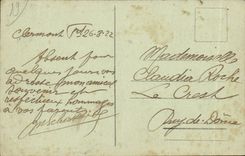 19
Clermont Fd 26-8-22
Absent pour
quelques jours vous
adresse mon amical
souvenir et
respectueux hommages
à vos parents
Mademoiselle
Claudia Roche
Le Crest
Puy-de-Dôme